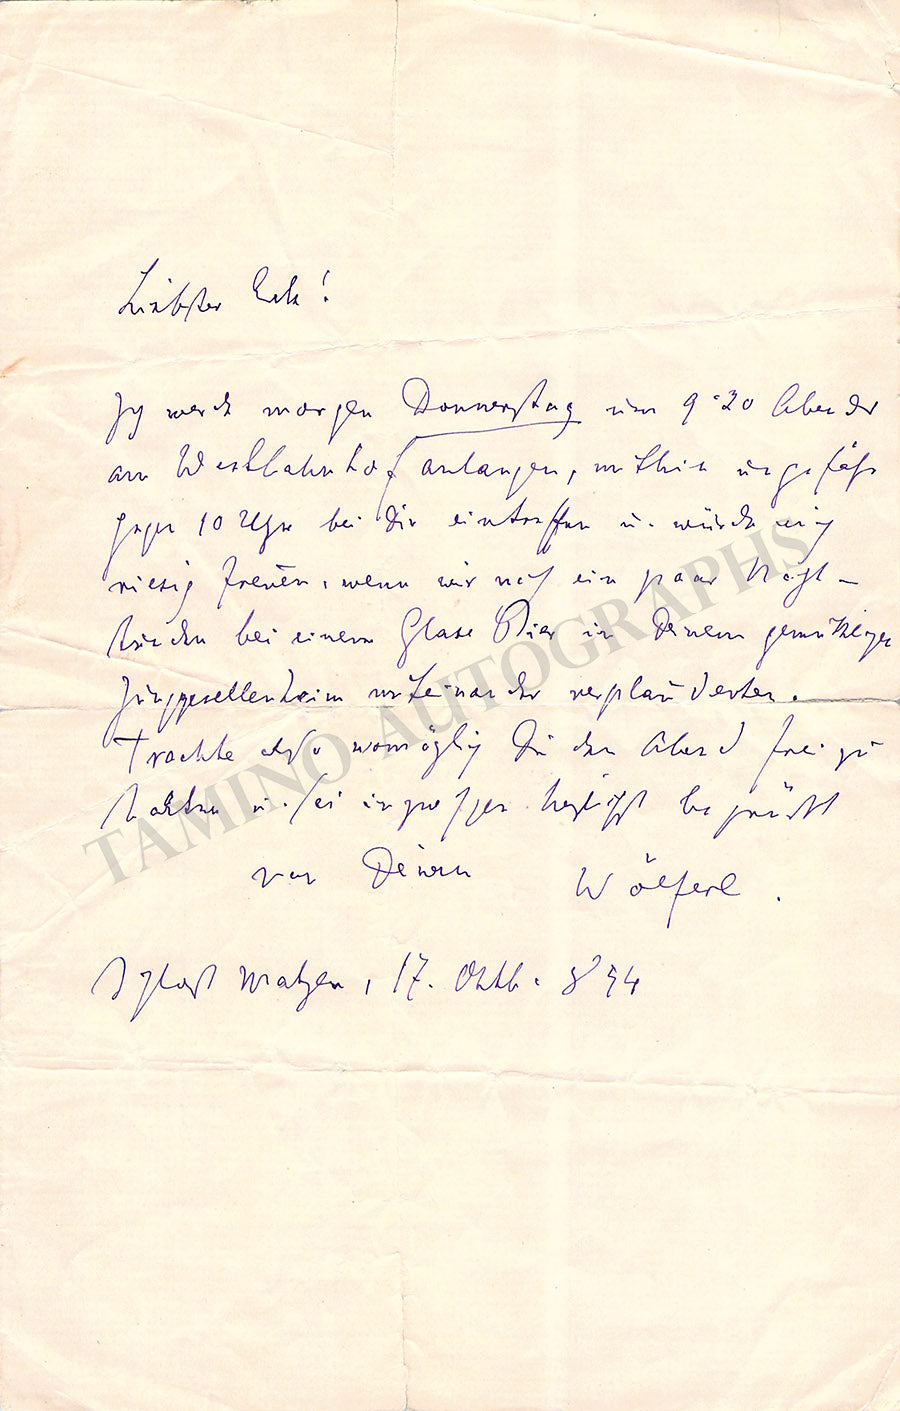 Liebster Eck!
Ich werde morgen Donnerstag um 9·20 Abends
am Westbahnhof anlangen, mithin ungefähr
gegen 10 Uhr bei Dir eintreffen u. würde mich
riesig freuen, wenn wir noch ein paar Nacht-
stunden bei einem Glase Bier in Deinem gemüthlichen
Junggesellenheim miteinander verplauderten.
Trachte also womöglich Dir den Abend frei zu
halten u. sei inzwischen herzlichst begrüßt
von Deinem Wölferl.
Schloss Matzen, 17. Oktb. 894
TAMINO AUTOGRAPHS